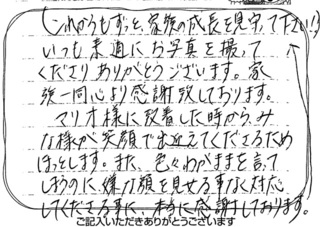 (これからもずっと、家族の成長を見守って下さい!)
いつも素適にお写真を撮って
くださりありがとうございます。家
族一同心より感謝致しております。
マリオ様に到着した時から、み
な様が笑顔で出迎えてくださるため
ほっとします。また、色々わがままを言って
しまうのに、嫌な顔を見せる事なく対応
してくださる事に、本当に感謝しております。
ご記入いただきありがとうございます